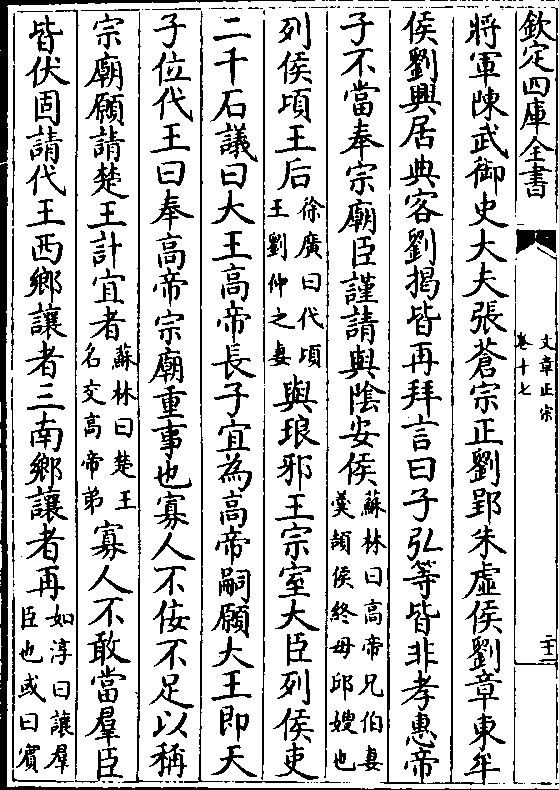 欽定四庫全書
文章正宗
卷十七
二十二
將軍陳武御史大夫張蒼宗正劉郢朱虚侯劉章東牟
侯劉興居典客劉揭皆再拜言曰子弘等皆非孝惠帝
子不當奉宗廟臣謹請與陰安侯蘇林曰高帝兄伯妻羮頡侯終母邱嫂也
列侯頃王后徐廣曰代頃王劉仲之妻與琅邪王宗室大臣列侯吏
二千石議曰大王高帝長子宜為高帝嗣願大王即天
子位代王曰奉高帝宗廟重事也寡人不佞不足以稱
宗廟願請楚王計宜者蘇林曰楚王名交高帝弟寡人不敢當羣臣
皆伏固請代王西鄉讓者三南鄉讓者再如淳曰讓羣臣也或曰賓